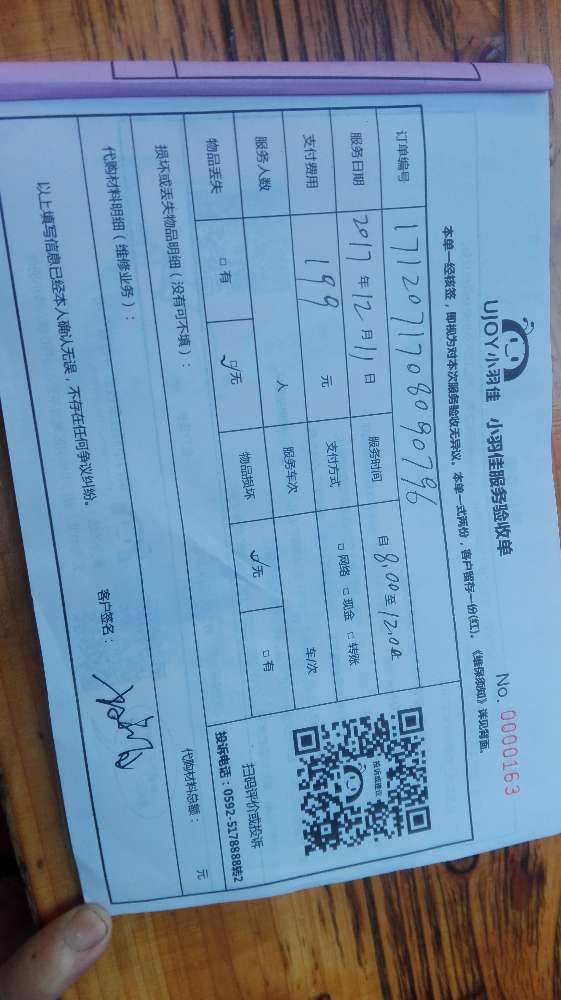 UJOY小羽佳 小羽佳服务验收单
No. 0000163
本单一经核签,即视为对本次服务验收无异议。本单一式两份,客户留存一份(红)。《维保须知》详见背面。
订单编号 171207170809796
服务日期 2017年12月11日 服务时间 自8:00至12:00止
支付费用 199 元 支付方式 □网络 □现金 □转账
服务人数 人 服务车次 车/次
物品丢失 □有 ☑无 物品损坏 ☑无 □有
投诉或建议
扫码评价或投诉
投诉电话:0592-5178888转2
损坏或丢失物品明细(没有可不填):
代购材料明细(维修业务): 代购材料总额: 元
以上填写信息已经本人确认无误,不存在任何争议纠纷。 客户签名: